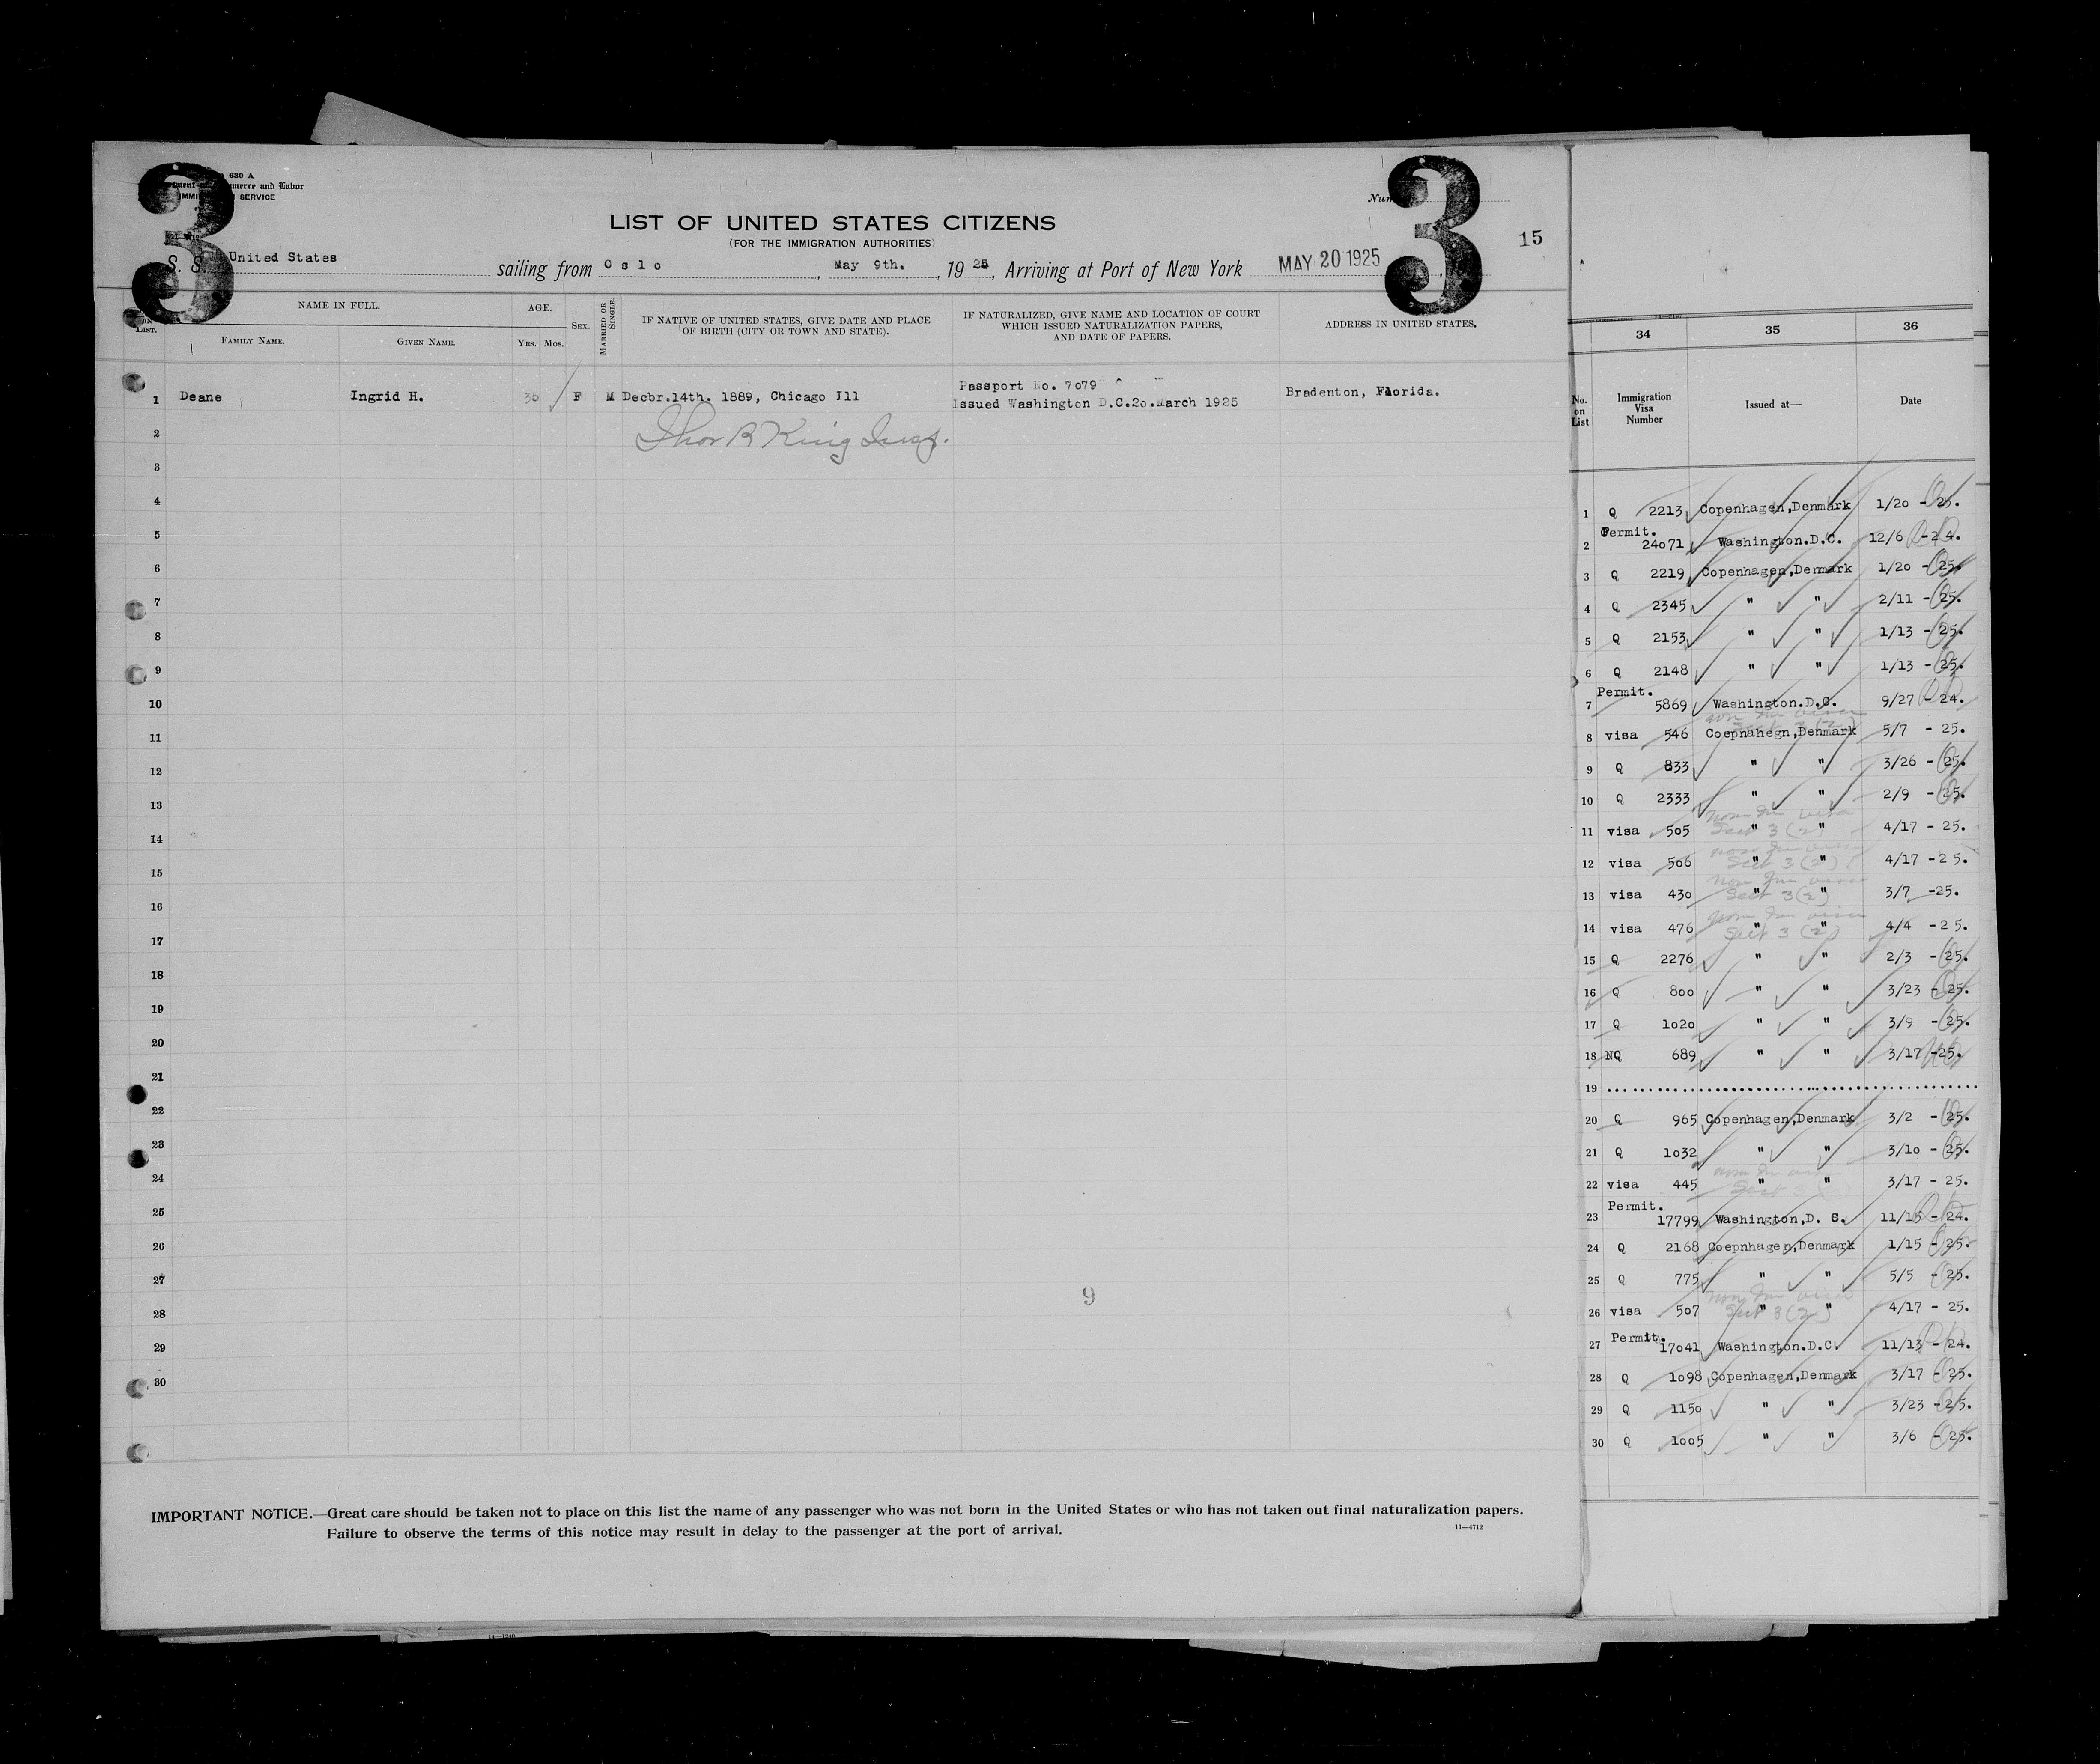 3
3
630 A
Commerce and Labor
SERVICE
LIST OF UNITED STATES CITIZENS
(FOR THE IMMIGRATION AUTHORITIES)
15
S. S. United States sailing from Oslo, May 9th., 1925, Arriving at Port of New York MAY 20 1925
LIST.
NAME IN FULL.
FAMILY NAME.
GIVEN NAME.
AGE.
YRS. MOS.
SEX.
MARRIED OR SINGLE.
IF NATIVE OF UNITED STATES, GIVE DATE AND PLACE
OF BIRTH (CITY OR TOWN AND STATE).
IF NATURALIZED, GIVE NAME AND LOCATION OF COURT
WHICH ISSUED NATURALIZATION PAPERS,
AND DATE OF PAPERS.
ADDRESS IN UNITED STATES.
Passport No. 7079
1 Deane Ingrid H. 35 F M Decbr.14th. 1889, Chicago Ill Issued Washington D.C.20.March 1925 Bradenton, Florida.
2 Thor R King Insp.
3
4
5
6
7
8
9
10
11
12
13
14
15
16
17
18
19
20
21
22
23
24
25
26
27
9
28
29
30
IMPORTANT NOTICE.—Great care should be taken not to place on this list the name of any passenger who was not born in the United States or who has not taken out final naturalization papers.
Failure to observe the terms of this notice may result in delay to the passenger at the port of arrival.
11—4712
34 35 36
No. on List
Immigration Visa Number
Issued at—
Date
1 Q 2213 Copenhagen,Denmark 1/20 - 25.
Permit.
2 24071 Washington.D.C. 12/6 -24.
3 Q 2219 Copenhagen,Denmark 1/20 - 25.
4 Q 2345 " " 2/11 - 25.
5 Q 2153 " " 1/13 - 25.
6 Q 2148 " " 1/13 - 25.
Permit.
7 5869 Washington.D.C. 9/27 - 24.
8 visa 546 Coepnahegn,Denmark 5/7 - 25.
9 Q 833 " " 3/26 - 25.
10 Q 2333 " " 2/9 - 25.
11 visa 505 " Sect 3 (2) " 4/17 - 25.
12 visa 506 " Sect 3 (2) " 4/17 -25.
13 visa 430 " Sect 3 (2) " 3/7 -25.
14 visa 476 " Sect 3 (2) " 4/4 -25.
15 Q 2276 " " 2/3 - 25.
16 Q 800 " " 3/23 - 25.
17 Q 1020 " " 3/9 - 25.
18 NQ 689 " " 3/17 -25.
19
20 Q 965 Copenhagen,Denmark 3/2 - 25.
21 Q 1032 " " 3/10 - 25.
22 visa 445 " " 3/17 - 25.
Permit.
23 17799 Washington,D. C. 11/15 - 24.
24 Q 2168 Coepnhagen,Denmark 1/15 - 25.
25 Q 775 " " 5/5 - 25.
26 visa 507 " Sect 3 (2) " 4/17 - 25.
Permit.
27 17041 Washington.D.C. 11/13 - 24.
28 Q 1098 Copenhagen,Denmark 3/17 - 25.
29 Q 1150 " " 3/23 -25.
30 Q 1005 " " 3/6 - 25.